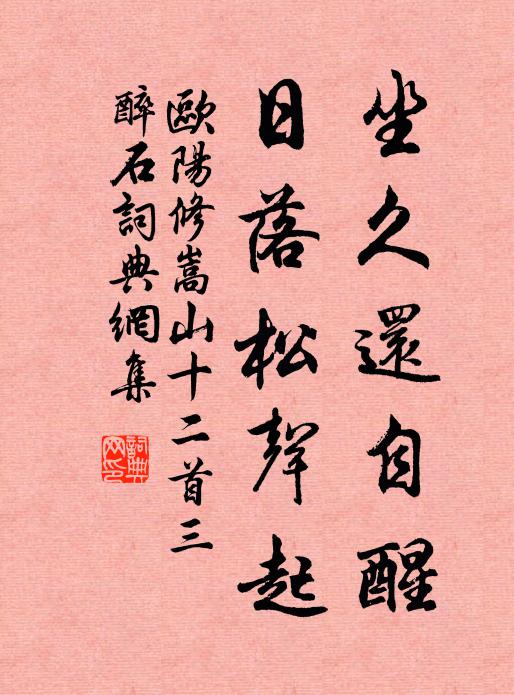 坐久還自醒
日落松聲起
歐陽修嵩山十二首三
醉石詞典網集
詞典网印